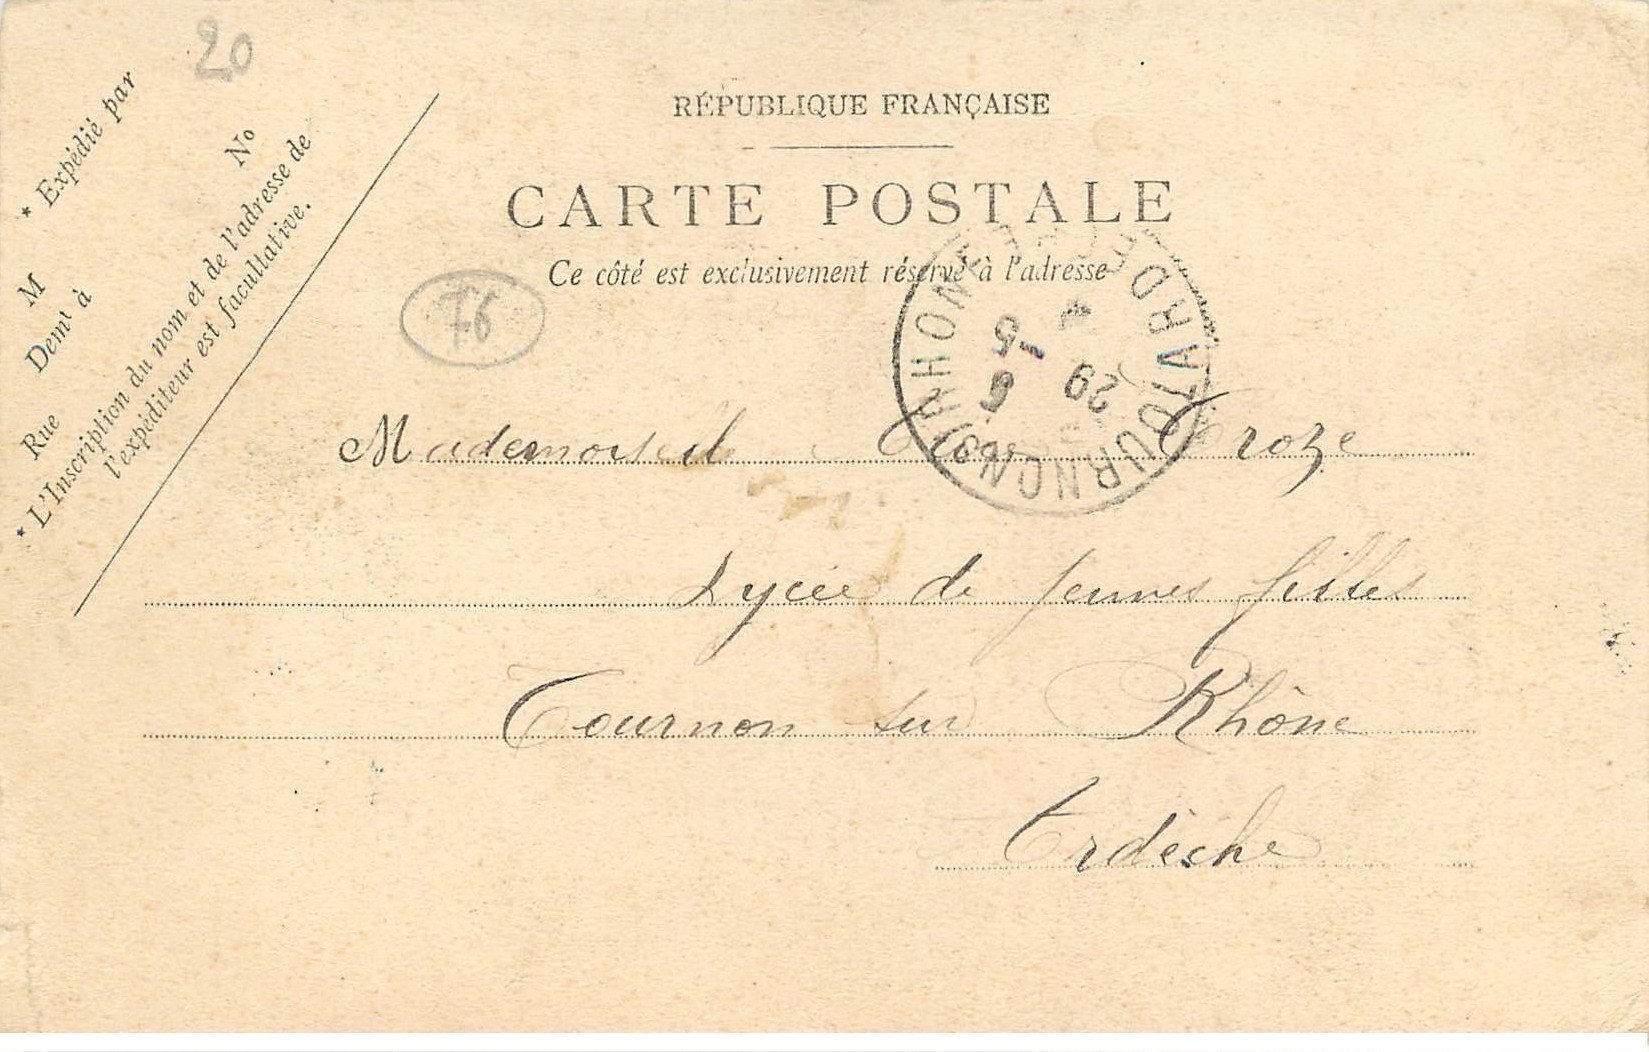 20
RÉPUBLIQUE FRANÇAISE
CARTE POSTALE
Ce côté est exclusivement réservé à l'adresse
* Expédié par
M
Demt à
Rue No
* L'Inscription du nom et de l'adresse de
l'expéditeur est facultative.
76
TOURNON-S-RHONE ARD
29
5
Mademoisell Croze
Lycée de Jeunes filles
Tournon sur Rhône
Ardèche